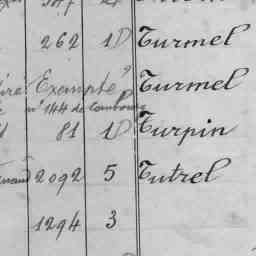 262 1D Turmel
Exempté Turmel
nº 144 de Combourg
81 1D Turpin
2092 5 Tutrel
1294 3